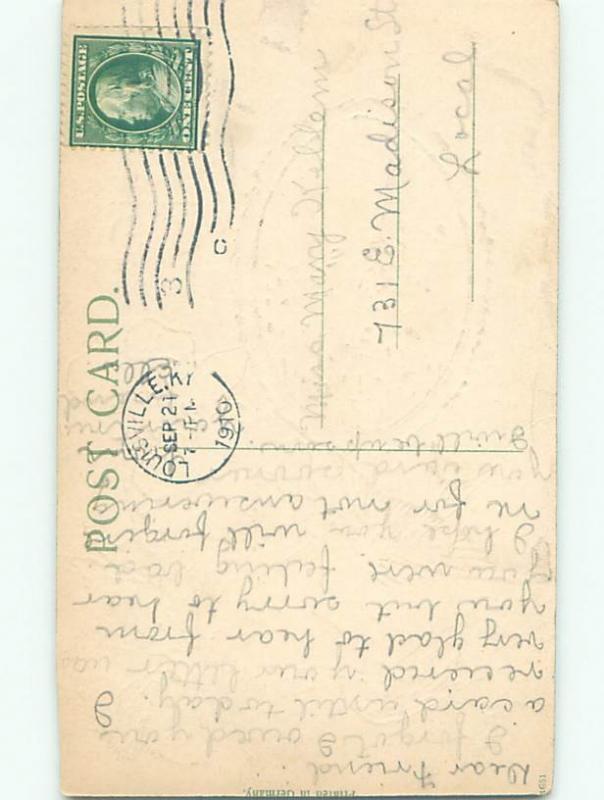 POST CARD.
U.S. POSTAGE
ONE CENT
LOUISVILLE, KY
SEP 21
1910
3
C
Miss Mary
731 E. Madison St
Local
Dear Friend
I forgot I owed you
a card until today. I
recieved your letter was
very glad to hear from
you but sorry to hear
you were feeling bad.
I hope you will forgive
me for not answering
your card sooner
I will be up soon
Printed in Germany.
1651